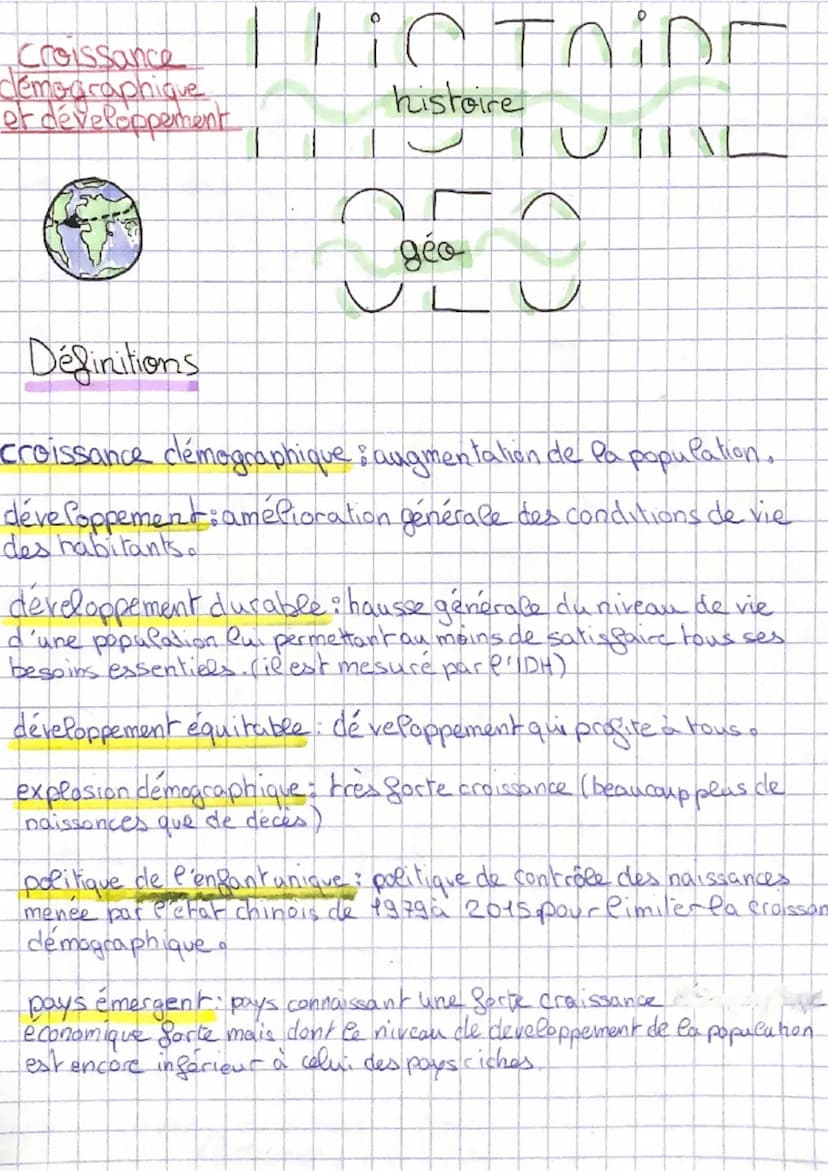 croissance
démographique
et développement
HISTOIRE
histoire
GEO
géo
Définitions
croissance démographique : augmentation de la population.
développement : amélioration générale des conditions de vie
des habitants.
développement durable : hausse générale du niveau de vie
d'une population lui permettant au moins de satisfaire tous ses
besoins essentiels. (il est mesuré par l'IDH)
développement équitable : développement qui profite à tous.
explosion démographique : très forte croissance (beaucoup plus de
naissances que de décès)
politique de l'enfant unique : politique de contrôle des naissances
menée par l'état chinois de 1979 à 2015 pour limiter la croissan
démographique.
pays émergent : pays connaissant une forte croissance
économique forte mais dont le niveau de developpement de la population
est encore inférieur à celui des pays riches.